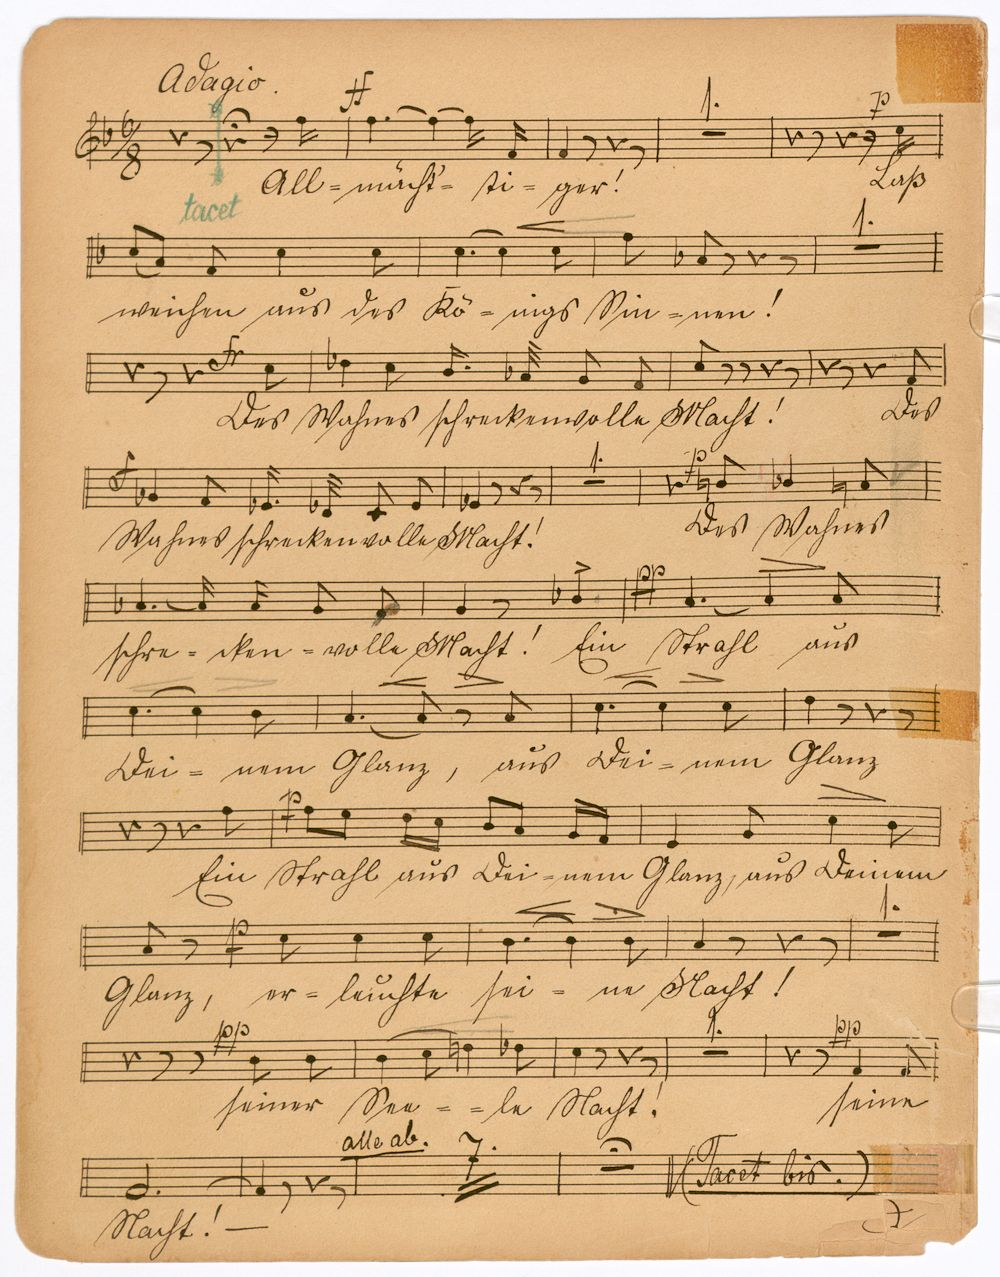 Adagio. ff 1. p
All-mäch-ti-ger! Laß
tacet
1.
weichen aus des Kö-nigs Sin-nen!
fr
Des Wahnes schreckenvolle Macht! Des
f 1. p
Wahnes schreckenvolle Macht! Des Wahnes
pp
schre-cken-volle Macht! Ein Strahl aus
Dei-nem Glanz, aus Dei-nem Glanz
p
Ein Strahl aus Dei-nem Glanz, aus Deinem
p 1.
Glanz, er-leuchte sei-ne Nacht!
pp 1. pp
seiner See--le Nacht! seine
alle ab. 7. (Tacet bis.)
Nacht!—